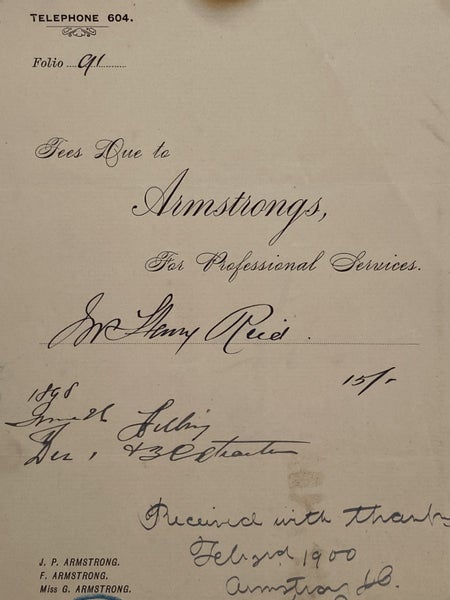 TELEPHONE 604.
Folio 91
Fees Due to
Armstrongs,
For Professional Services.
Mr Henry Reid.
15/-
1898
Dec.
Received with thanks
1900
Armstrong
J. P. ARMSTRONG.
F. ARMSTRONG.
Miss G. ARMSTRONG.